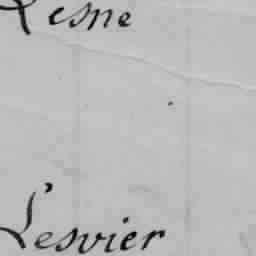 Lesne
Lesvier